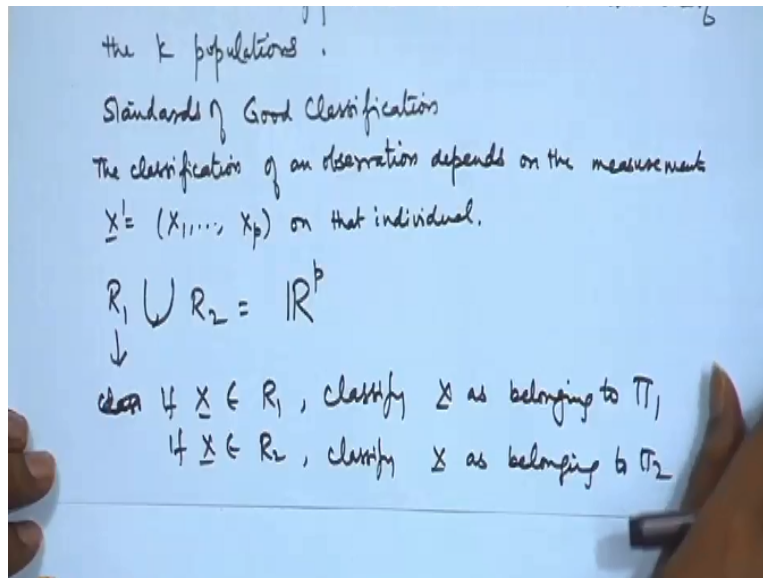 the k populations.
Standards of Good Classification
The classification of an observation depends on the measurements
X' = (X1,..., Xp) on that individual.
R1 ∪ R2 = ℝ^p
↓
if X ∈ R1, classify X as belonging to Π1
if X ∈ R2, classify X as belonging to Π2